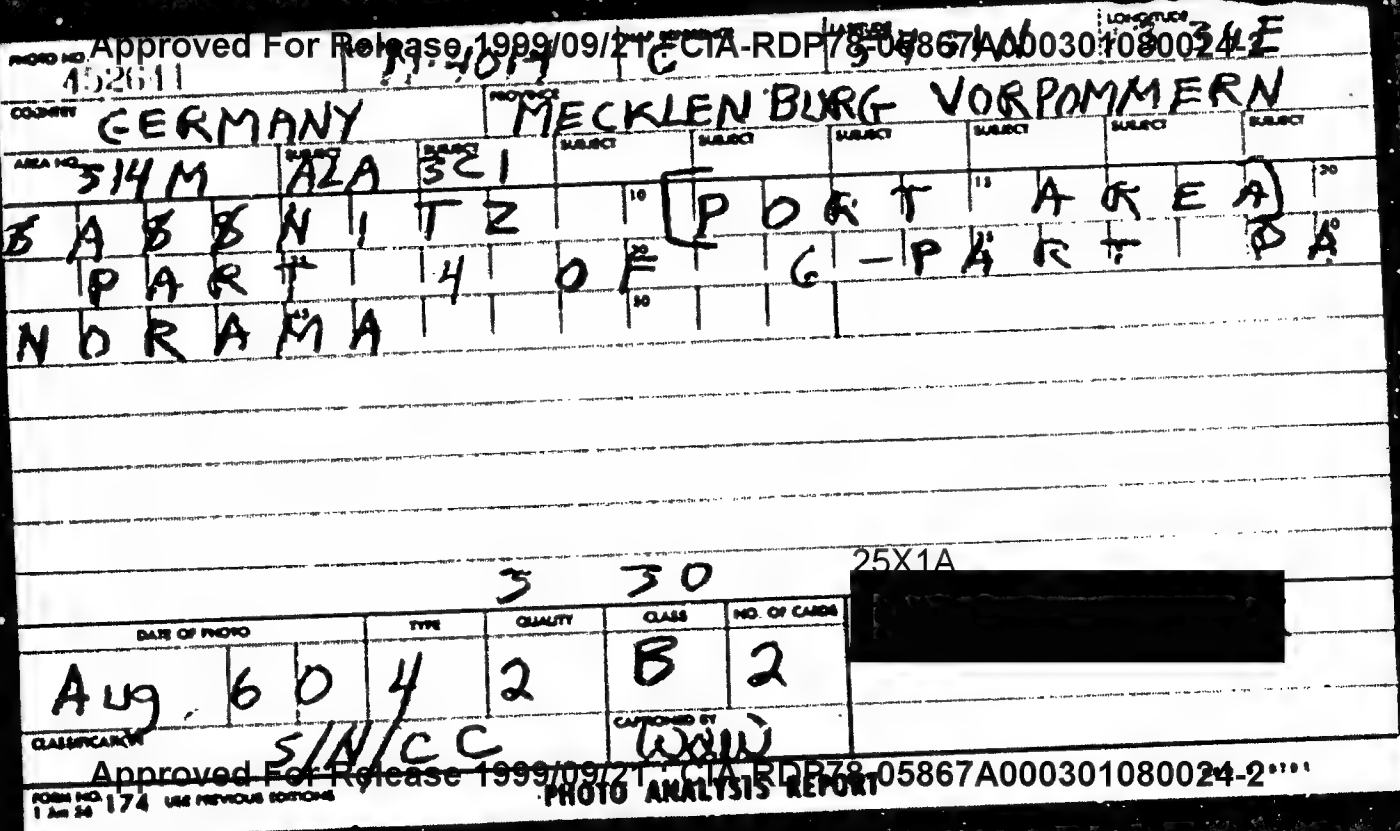 Approved For Release 1999/09/21 : CIA-RDP78-05867A000301080024-2
PHOTO NO. LONGITUDE
452641 C
COUNTRY GERMANY PROVINCE MECKLENBURG VORPOMMERN
AREA NO. 514M SUBJECT ALA SUBJECT 3C1 SUBJECT SUBJECT SUBJECT SUBJECT SUBJECT SUBJECT
SASSNITZ 10 [PORT 15 AREA) 20
PART 4 OF 30 6-PART PA 40
NORAMA 45 50
25X1A
3 30
DATE OF PHOTO TYPE QUALITY CLASS NO. OF CARDS
Aug. 60 4 2 B 2
CLASSIFICATION S/N/CC CAPTIONED BY
Approved For Release 1999/09/21 : CIA-RDP78-05867A000301080024-2
FORM NO. 174 USE PREVIOUS EDITIONS PHOTO ANALYSIS REPORT
1 Jan 54